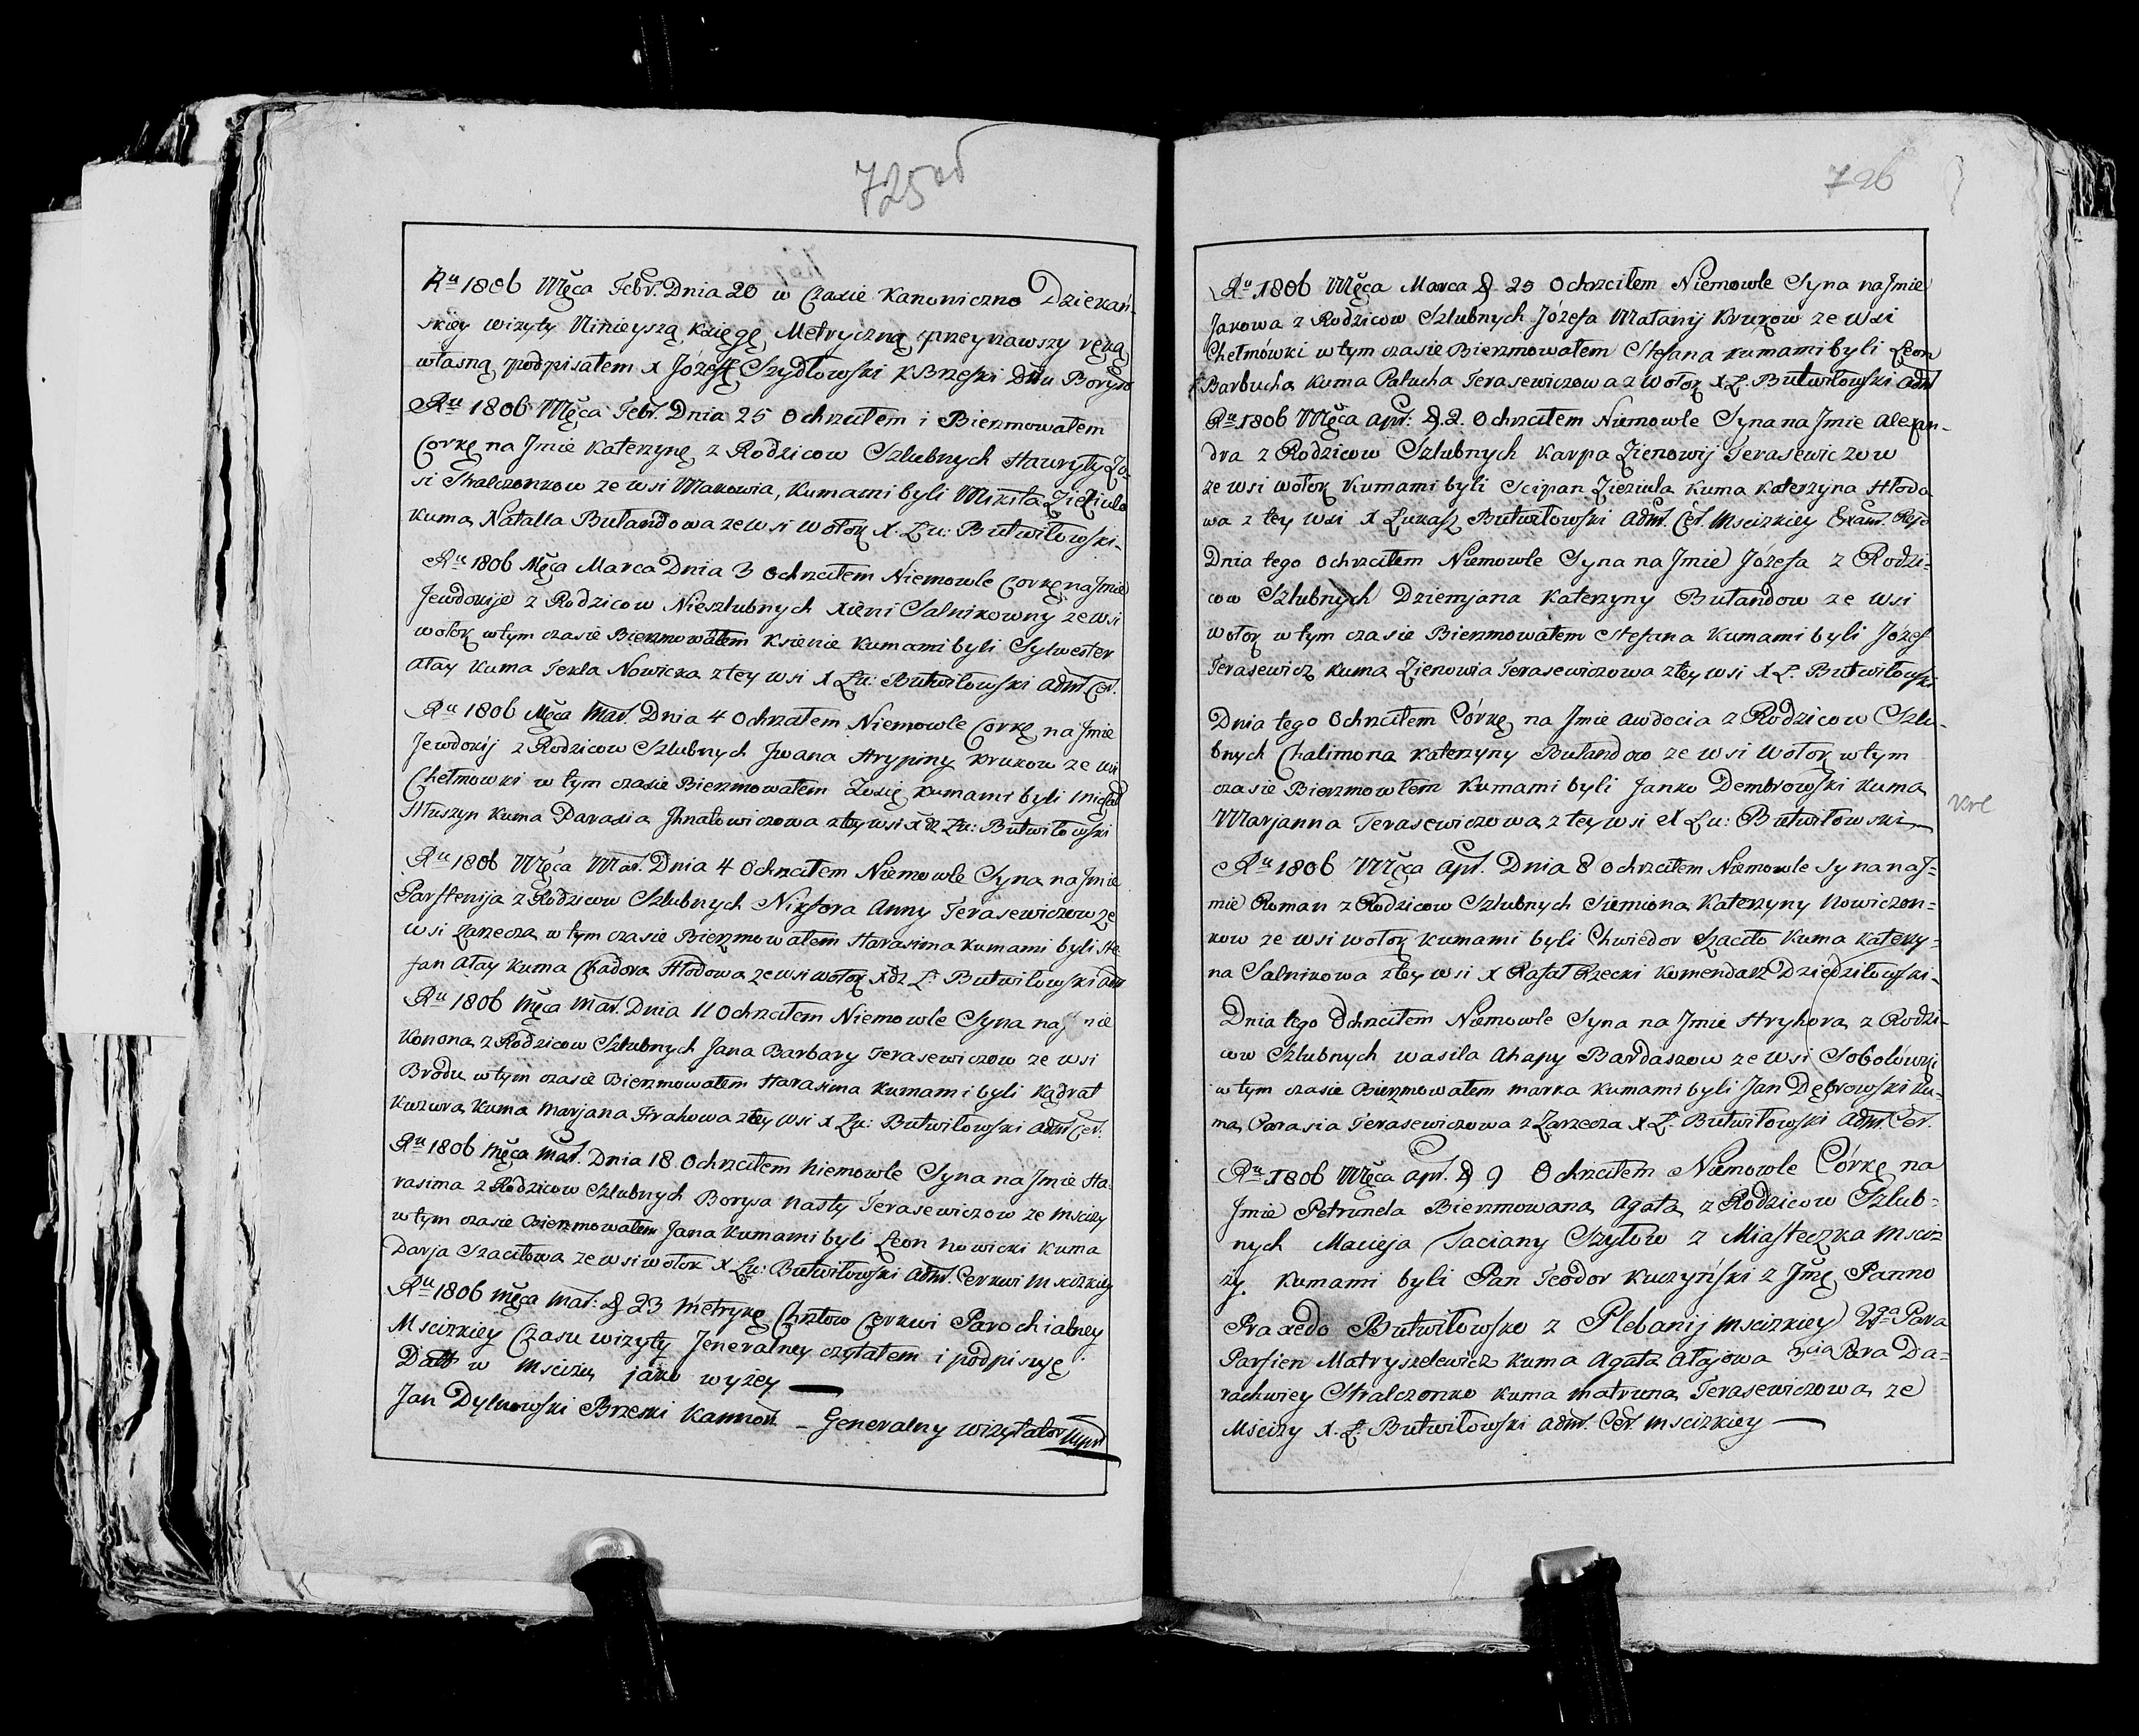 725 od
Ru 1806 Męca Febr. Dnia 20 w Czasie Kanoniczno Dziekań-
skiey wizyty Ninieyszą Księgę Metryczną przeyrzawszy ręką
własną podpisałem X Józeff Szydłowski K Brzeski Dzn Borys
Ru 1806 Męca Febr. Dnia 25 Ochrzciłem i Bierzmowałem
Corkę na Jmie Katerzynę z Rodzicow Szlubnych Hawryły Zo-
si Stralczonkow ze wsi Makowia, Kumami byli Mikita Zieziula
Kuma Natalla Bułandowa ze wsi Wołok X. Łu: Butwiłowski-
Ru 1806 Męca Marca Dnia 3 Ochrzciłem Niemowle Corkę na Jmie
Jewdokije z Rodzicow Nieszlubnych Xieni Salnikowny ze wsi
Wołok w tym czasie Bierzmowałem Ksienie Kumami byli Sylwester
Ałay Kuma Tekla Nowicka z tey wsi X Łu: Butwiłowski Adm. Cer.
Ru 1806 Męca Mar. Dnia 4 Ochrzciłem Niemowle Corkę na Jmie
Jewdokij z Rodzicow Szlubnych Jwana Hrypiny Krukow ze wsi
Chełmowki w tym czasie Bierzmowałem Zosię Kumami byli Michał
Hłuszyn Kuma Darasia Jhnatowiczowa z tey wsi Xdz Łu: Butwiłowski
Ru 1806 Męca Mar. Dnia 4 Ochrzciłem Niemowle Syna na Jmie
Parftenija z Rodzicow Szlubnych Nikfora Anny Terasewiczow ze
wsi Zarzecza w tym czasie Bierzmowałem Harasima Kumami byli Ste
fan Ałay Kuma Chadora Hłodowa ze wsi Wołok Xdz Ł: Butwiłowski Adm
Ru 1806 Męca Mar. Dnia 11 Ochrzciłem Niemowle Syna na Jmie
Konona z Rodzicow Szlubnych Jana Barbary Terasewiczow ze wsi
Brodu w tym czasie Bierzmowałem Harasima Kumami byli Kądrat
Kuzura Kuma Marjana Hrakowa z tey wsi X Łu: Butwiłowski Adm Cer.
Ru 1806 Męca Mar. Dnia 18 Ochrzciłem Niemowle Syna na Jmie Ha-
rasima z Rodzicow Szlubnych Borysa Nasty Terasewiczow ze Mscizy
w tym czasie Bierzmowałem Jana Kumami byli Leon Nowicki Kuma
Darja Szaciłowa ze wsi Wołok X Łu: Butwiłowski Adm. Cerkwi Mscizkiey
Ru 1806 Męca Mar: D 23 Metrykę Chrztow Cerkwi Parochialney
Mscizkiey Czasu wizyty Jeneralney czytałem i podpisuję
Datt w Mscizu jako wyżey
Jan Dylewski Brzeski Kannon - Generalny Wizytator Mpr
726
Ru 1806 Męca Marca D 25 Ochrzciłem Niemowle Syna na Jmie
Jakowa z Rodzicow Szlubnych Józefa Małanij Krukow ze wsi
Chełmówki w tym czasie Bierzmowałem Stefana Kumami byli Leon
Barbucha Kuma Pałucha Terasewiczowa z Wołok X Ł. Butwiłowski Adm
Ru 1806 Męca Apr: D. 2. Ochrzciłem Niemowle Syna na Jmie Alexan-
dra z Rodzicow Szlubnych Karpa Zienowij Terasewiczow
ze wsi Wołok Kumami byli Scipan Zieziula Kuma Katerzyna Hłodo
wa z tey wsi X Łukasz Butwiłowski Adm. Cer. Mscizkiey
Dnia tego Ochrzciłem Niemowle Syna na Jmie Józefa z Rodzi-
cow Szlubnych Dziemjana Katerzyny Bułandow ze wsi
Wołok w tym czasie Bierzmowałem Stefana Kumami byli Józef
Terasewicz Kuma Zienowia Terasewiczowa z tey wsi X Ł. Butwiłowski
Dnia tego Ochrzciłem Córkę na Jmie Awdocia z Rodzicow Szlu-
bnych Chalimona Katerzyny Bułandow ze wsi Wołok w tym
czasie Bierzmowłem Kumami byli Janko Dembrowski Kuma
Marjanna Terasewiczowa z tey wsi X Łu: Butwiłowski
Ru 1806 Męca Apr. Dnia 8 Ochrzciłem Niemowle Syna na J-
mie Roman z Rodzicow Szlubnych Siemiona Katerzyny Nowiczon-
kow ze wsi Wołok Kumami byli Chwiedor Szaciło Kuma Katerzy-
na Salnikowa z tey wsi X Rafał Rzecki Komendarz Dziedziłowski-
Dnia tego Ochrzciłem Niemowle Syna na Jmie Hryhora z Rodzi-
cow Szlubnych Wasila Ahapy Bardaszow ze wsi Sobolówki
w tym czasie Bierzmowałem Marka Kumami byli Jan Dębrowski Ku-
ma Parasia Terasewiczowa z Zarzecza X Ł. Butwiłowski Adm. Cer.
Ru 1806 Męca Apr. D 9 Ochrzciłem Niemowle Córkę na
Jmie Petrunela Bierzmowana Agata z Rodzicow Szlub-
nych Macieja Taciany Szyłow z Miasteczka Msci-
ży. Kumami byli Pan Teodor Kuczyński z Jmę Panno
Praxedo Butwiłowsko z Plebanij Mscizkiey 2ga Para
Parfien Matryszelewicz Kuma Agata Ałajowa 3cia Para Da-
rachwiey Stralczonko Kuma Matruna Terasewiczowa ze
Mscizy X. Ł. Butwiłowski Adm. Cer. Mscizkiey